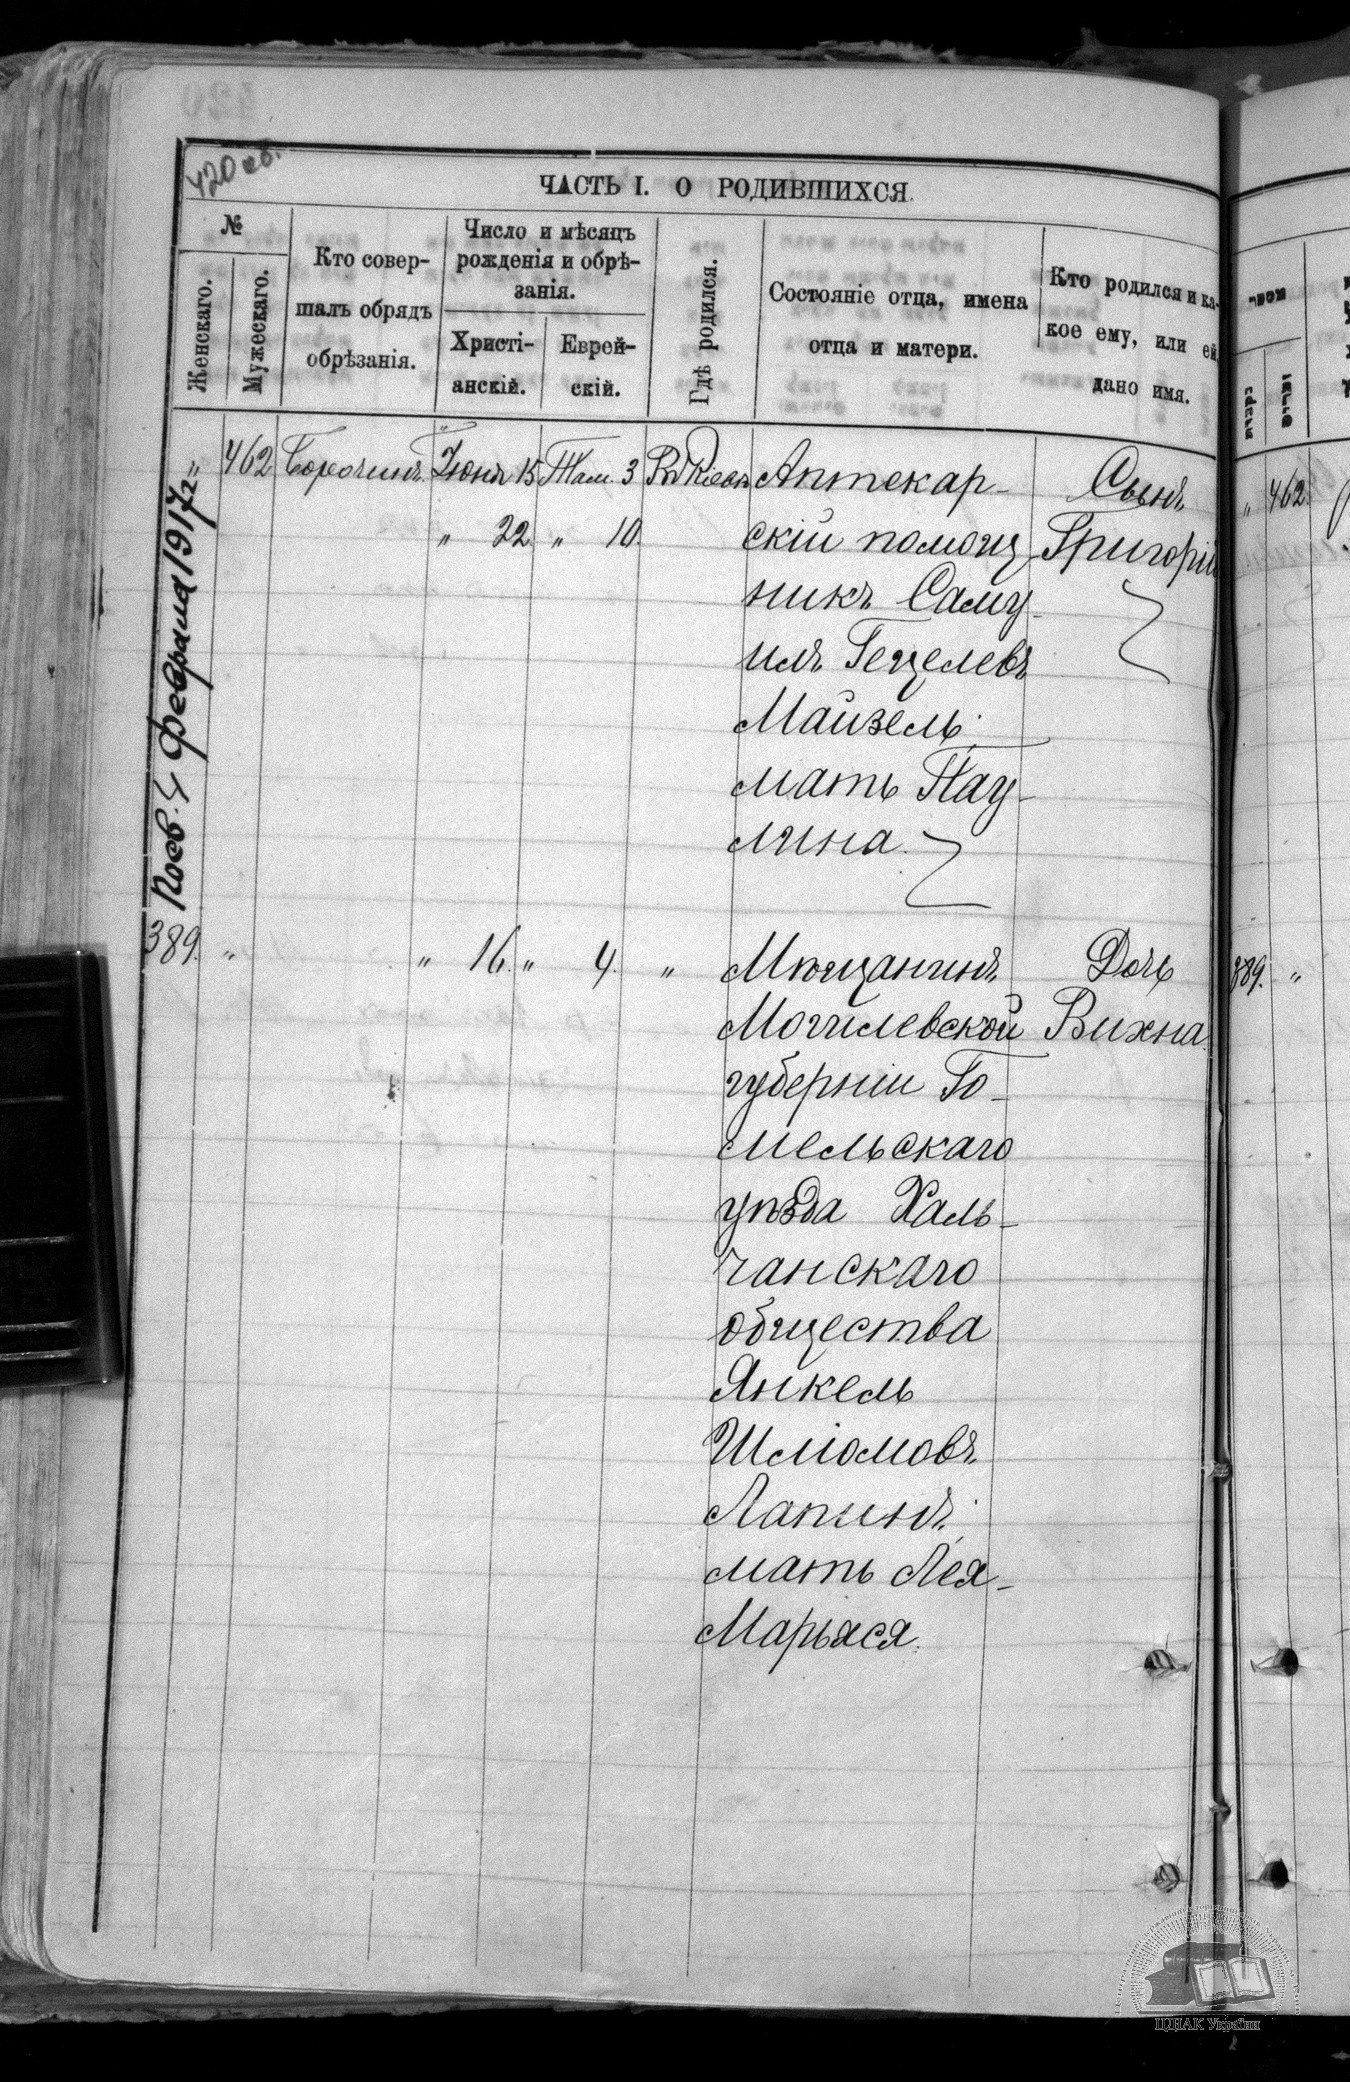 420 об.
ЧАСТЬ I. О РОДИВШИХСЯ.
№
Женскаго.
Мужескаго.
Кто совер-
шалъ обрядъ
обрѣзанія.
Число и мѣсяцъ
рожденія и обрѣ-
занія.
Христі-
анскій.
Еврей-
скій.
Гдѣ родился.
Состояніе отца, имена
отца и матери.
Кто родился и ка-
кое ему, или ей
дано имя.
" 462 Сорочкинъ Іюня 15 Там. 3 Въ Кіевѣ
" 22. " 10.
Аптекар-
скій помощ-
никъ Саму-
илъ Гецелевъ
Майзель;
мать Пау-
лина.
Сынъ
Григорій
4 февраля 1917 г.
389. " " 16. " 4. "
Мѣщанинъ
Могилевской
губерніи Го-
мельскаго
уѣзда Халь-
чанскаго
общества
Янкель
Шліомовъ
Лапинъ;
мать Лея-
Марьяся.
Дочь
Вихна.
" 462.
389. "
ЦДІАК України